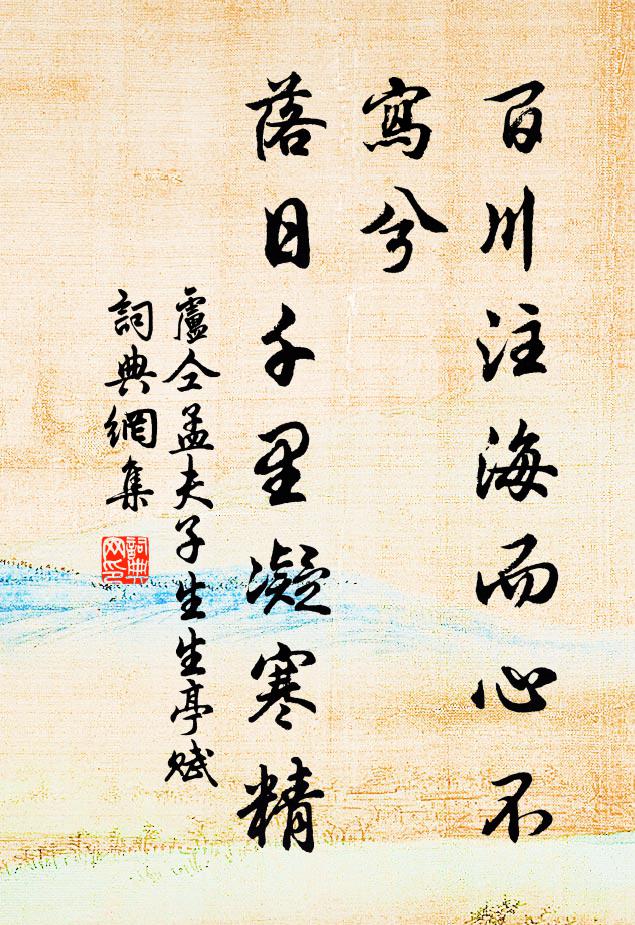 百川注海而心不
寫兮
落日千里凝寒精
盧仝孟夫子生生亭賦
詞典網集
詞典
网印